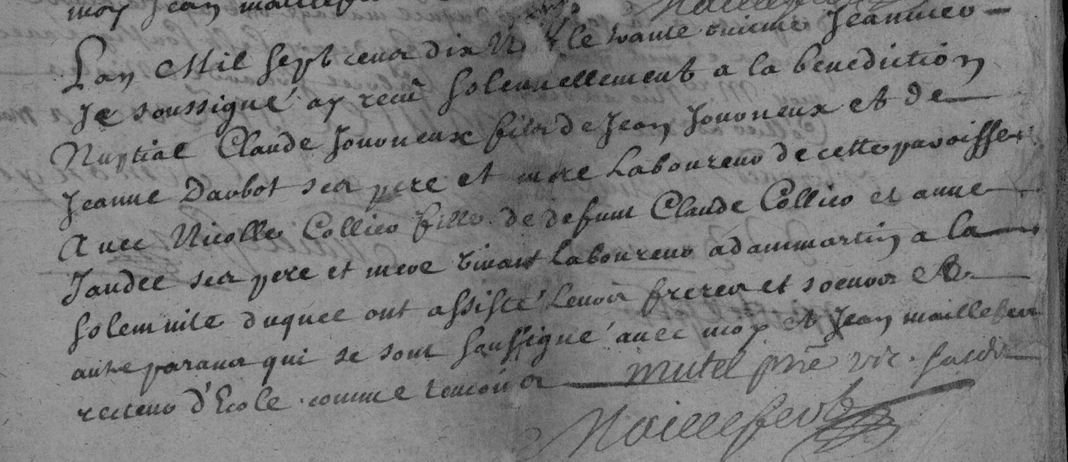 moy Jean maillefer
Maillefer
L'an Mil sept cens dix le trante unieme Jeanvier
Je soussigné ay receu solennellement a la benediction
Nuptial Claude Jovoneux fils de Jean Jovoneux et de
Jeanne Daubot ses pere et mere Laboureur de cette paroisse
Avec Nicolle Collico fille de defunt Claude Collico et anne
Jandee ses pere et mere vivant Laboureur a dammartin a la
solemnite duquel ont assisté leurs freres et soeurs &
autre parans qui se sont soussigné avec moy et Jean maillefer
recteur d'Ecole comme temoins mutel pre vic.
Maillefert